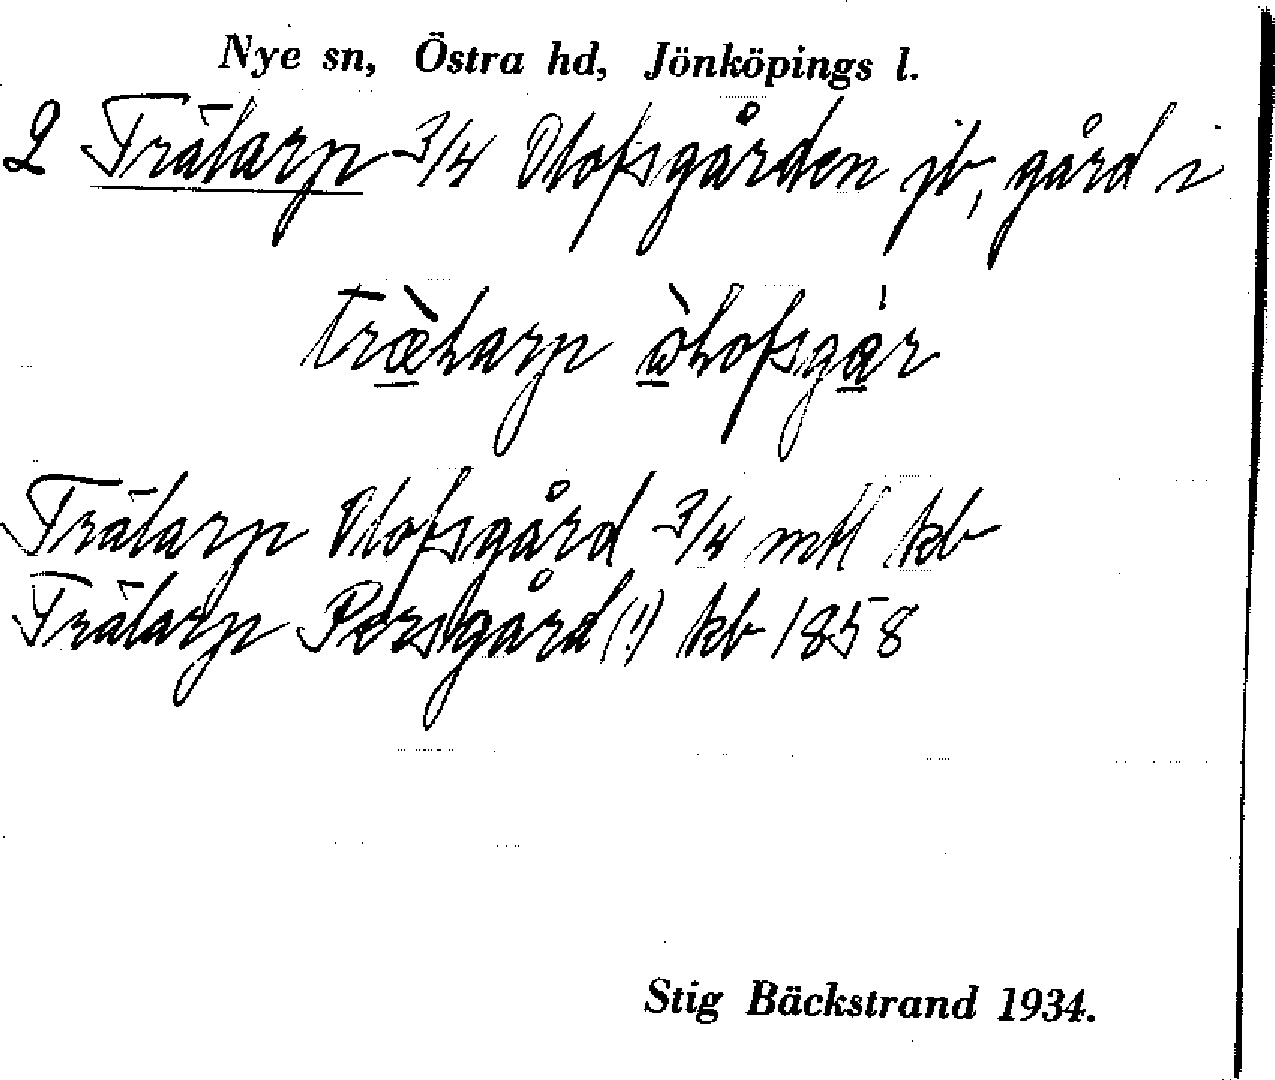 Nye sn, Östra hd, Jönköpings l.
2 Trälarp 3/4 Olofsgården jb, gård i
træ̀larp òlofsgár
Trälarp Olofsgård 3/4 mtl kb
Trälarp Persgård (!) kb 1858
Stig Bäckstrand 1934.